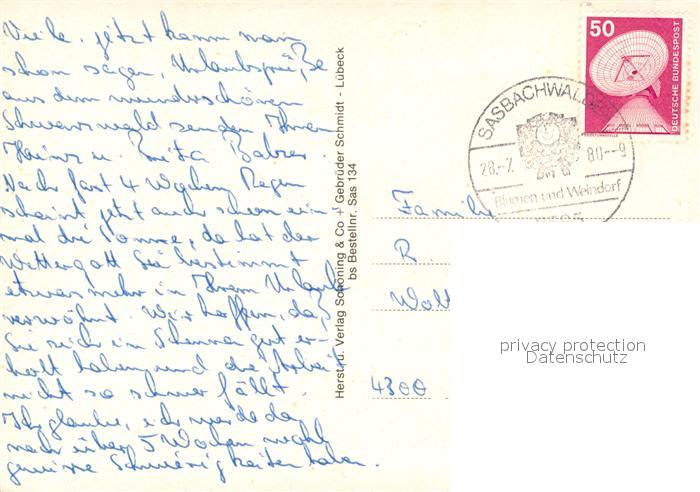 Viele, jetzt kann man
schon sagen, Urlaubsgrüße
aus dem wunderschönen
Schwarzwald senden Ihnen
Heinz u. Rita
Nach fast 4 Wochen Regen
scheint jetzt auch schon ein-
mal die Sonne, da hat der
Wettergott Sie bestimmt
etwas mehr in Ihrem Urlaub
verwöhnt. Wir hoffen, daß
Sie sich in Schenna gut er-
holt haben und die Arbeit
nicht so schwer fällt.
Ich glaube, ich werde da
nach über 5 Wochen wohl
gewisse Schwierigkeiten haben.
Herst. u. Verlag Schöning & Co + Gebrüder Schmidt - Lübeck
bs Bestellnr. Sas 134
50
DEUTSCHE BUNDESPOST
SASBACHWALDEN
28.-7. 80--9
Blumen und Weindorf
Familie
R.
Wolt
4300
privacy protection
Datenschutz